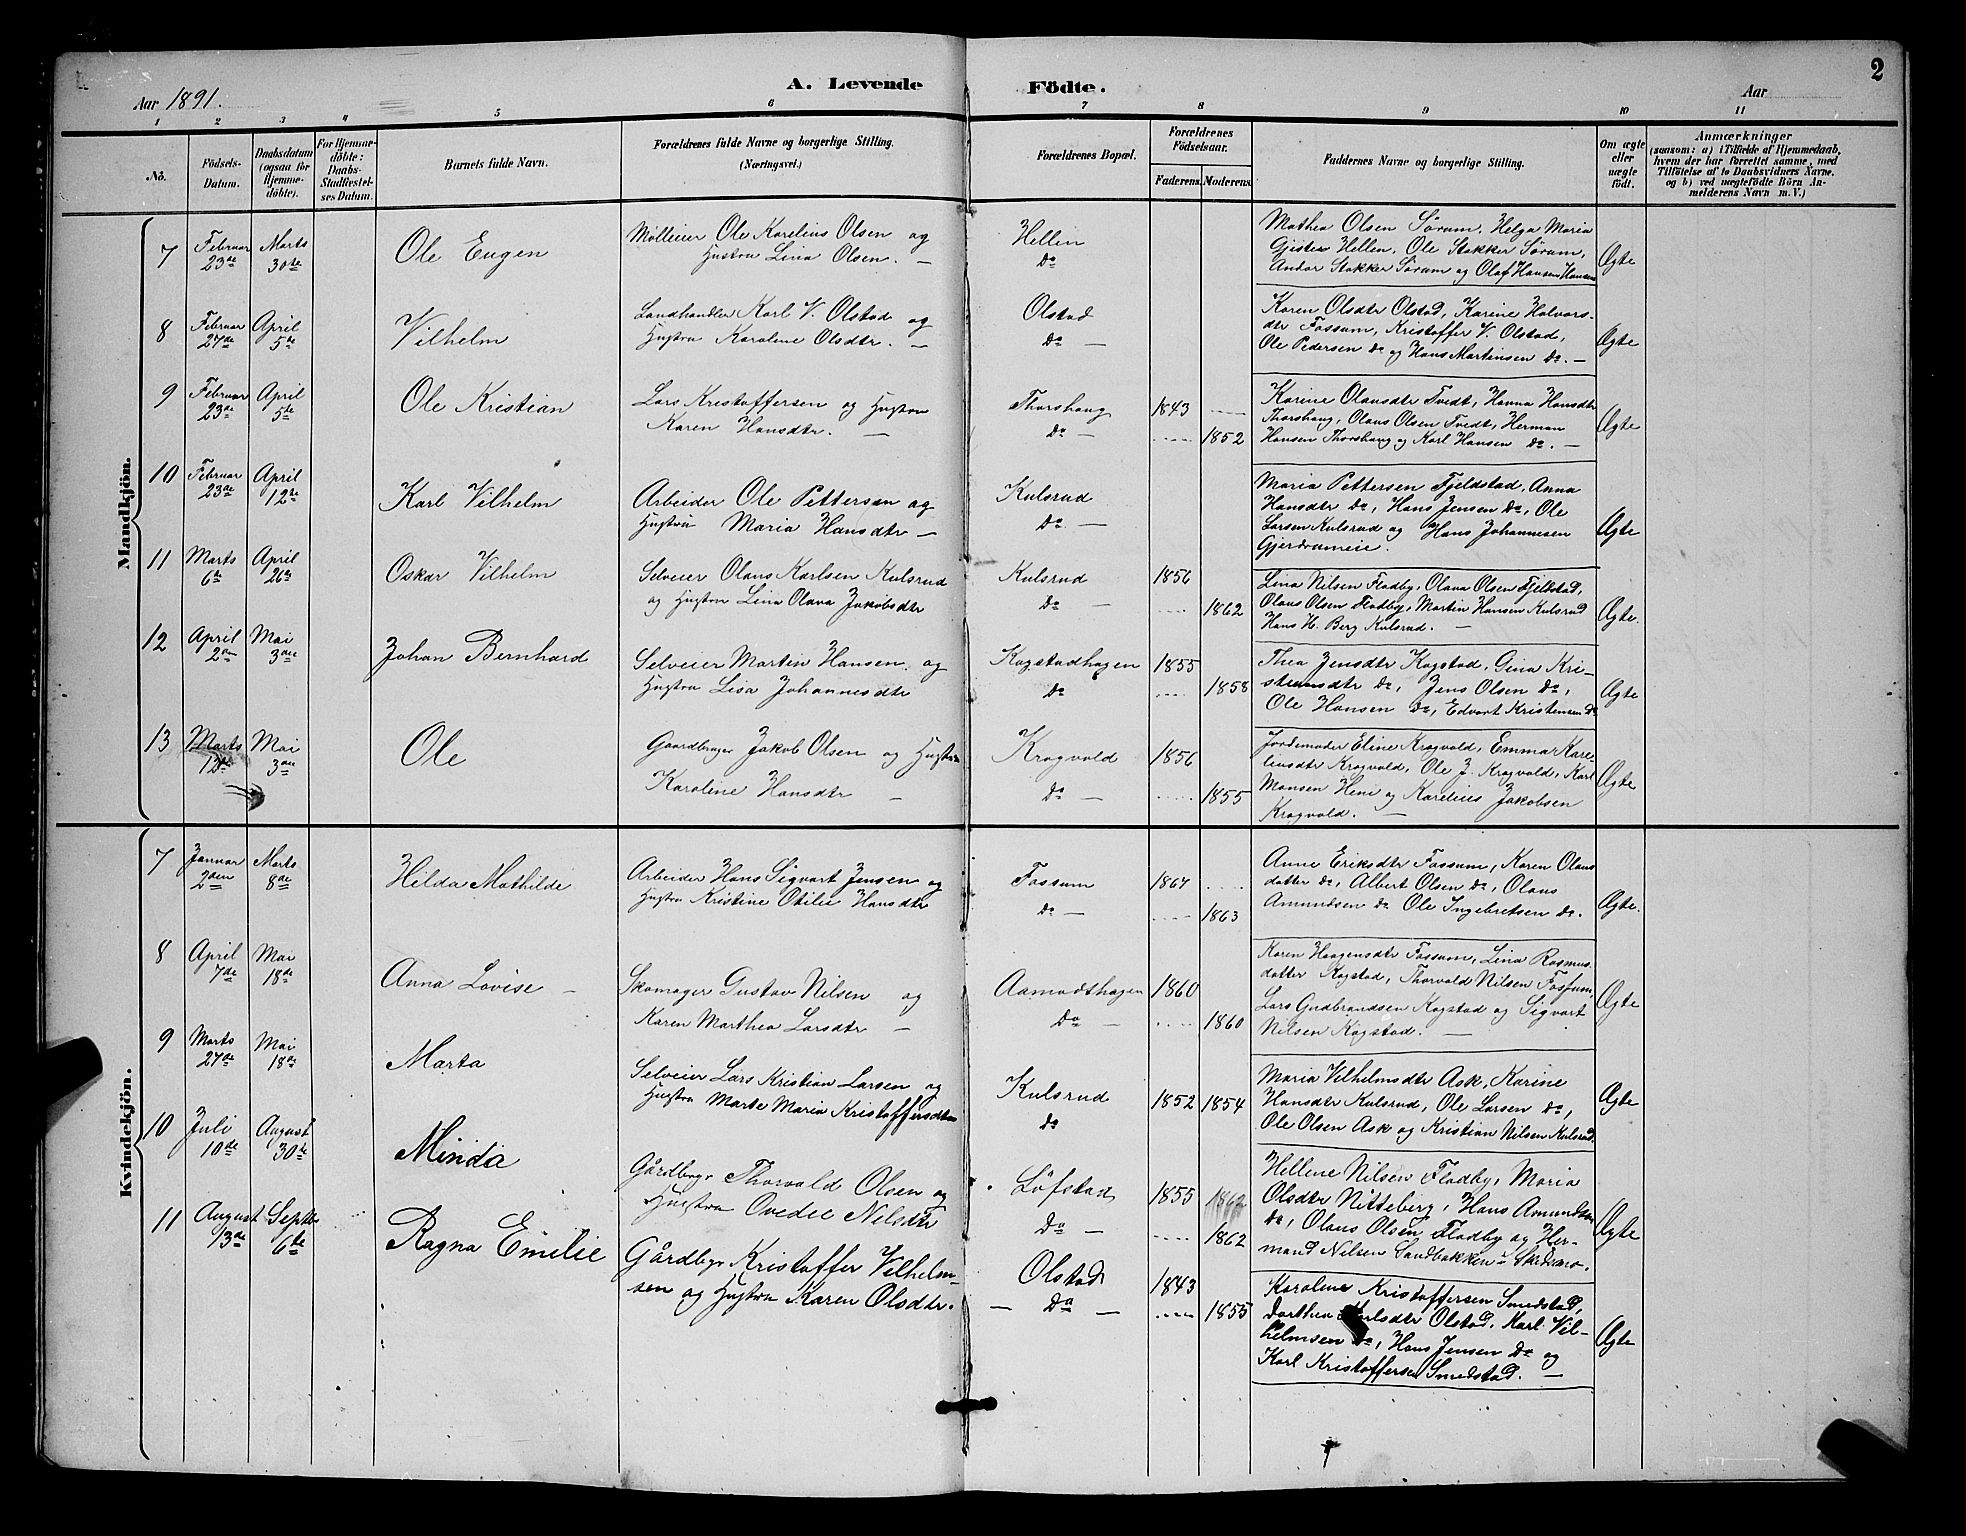 2
Aar 1891.
A. Levende Födte.
Aar
1 2 3 4 5 6 7 8 9 10 11
No.
Födsels-Datum.
Daabsdatum (ogsaa for Hjemmedöbte).
For Hjemmedöbte: Daabs-Stadfæstelses Datum.
Barnets fulde Navn.
Forældrenes fulde Navne og borgerlige Stilling. (Næringsvei.)
Forældrenes Bopæl.
Forældrenes Födselsaar.
Faderens. Moderens.
Faddernes Navne og borgerlige Stilling.
Om ægte eller uægte födt.
Anmærkninger
(saasom: a) i Tilfælde af Hjemmedaab, hvem der har forrettet samme, med Tilföielse af to Daabsvidners Navne, og b) ved uægtefödte Börn Anmelderens Navn m. V.)
Mandkjön.
7 Februar 23de Marts 30te
Ole Eugen
Mølleier Ole Karelius Olsen og
Hustru Lina Olsen. —
Hellin
Do
Mathea Olsen Sørum, Helga Maria
Hellen, Ole Stakker Sørum,
Andor Stakker Sørum og Olaf Hansen Hansen
Ægte
8 Februar 27de April 5te
Vilhelm
Landhandler Karl V. Olstad og
Hustru Karolene Olsdtr. —
Olstad
Do —
Karen Olsdtr Olstad, Karine Halvors-
dtr Fossum, Kristoffer V. Olstad,
Ole Pedersen Do og Hans Martinsen Do. —
Ægte
9 Februar 23de April 5te
Ole Kristian
Lars Kristoffersen og Hustru
Karen Hansdtr. —
Thorshaug 1843
Do — 1852
Karine Olausdtr Tvedt, Hanna Hansdtr
Thorshaug, Olaus Olsen Tvedt, Herman
Hansen Thorshaug og Karl Hansen Do. —
Ægte
10 Februar 23de April 12te
Karl Vilhelm
Arbeider Ole Pettersen og
Hustru Maria Hansdtr —
Kulsrud
Do —
Maria Pettersen Fjeldstad, Anna
Hansdtr Do, Hans Jensen Do, Ole
Larsen Kulsrud og Hans Johannesen
Gjerdrumeie.
Ægte
11 Marts 6te April 26de
Oskar Vilhelm
Selveier Olaus Karlsen Kulsrud
og Hustru Lina Olava Jakobsdtr
Kulsrud 1856
Do — 1862
Lina Nilsen Flodby, Olava Olsen Fjeldstad,
Olaus Olsen Flodby, Martin Hansen Kulsrud
Hans H. Berg Kulsrud. —
Ægte.
12 April 2den Mai 3die
Johan Bernhard
Selveier Martin Hansen og
Hustru Lisa Johannesdtr
Kogstadhagen 1855
Do 1858
Thea Jensdtr Kogstad, Gina Kri-
stiansdtr Do, Jens Olsen Do,
Ole Hansen Do, Edvart Kristensen Do
Ægte
13 Marts 12te Mai 3die
Ole
Gaardbruger Jakob Olsen og Hustru
Karoline Hansdtr —
Krogvold 1856
Do — 1855
Jordemoder Eline Krogvold, Emma Kare-
liusdtr Krogvold, Ole J. Krogvold, Karl
Monsen Heni og Karelius Jakobsen
Krogvold. —
Ægte
Kvindekjön.
7 Januar 2den Marts 8de
Hilda Mathilde
Arbeider Hans Sigvart Jensen og
Hustru Kristine Otilie Hansdtr
Fossum 1864
Do — 1863
Anne Eriksdtr Fossum, Karen Olaus
datter Do, Albert Olsen Do, Olaus
Amundsen Do Ole Ingebretsen Do.
Ægte.
8 April 7de Mai 18de
Anna Lovise —
Skomager Gustav Nilsen og
Karen Marthea Larsdtr —
Aamodthagen 1860
Do — 1860
Karen Haagensdtr Fossum, Lina Rasmus-
datter Kogstad, Thorvald Nilsen Fossum,
Lars Gudbrandsen Kogstad og Sigvart
Nilsen Kogstad. —
Ægte
9 Marts 27de Mai 18de
Marta
Selveier Lars Kristian Larsen og
Hustru Marte Maria Kristoffersdtr
Kulsrud 1852 1854
Do
Maria Vilhelmsdtr Ask, Karine
Hansdtr Kulsrud, Ole Larsen Do,
Ole Olsen Ask og Kristian Nilsen Kulsrud.
Ægte
10 Juli 10de August 30te
Minda
Gårdbrgr Thorvald Olsen og
Hustru Ovedie Nilsdtr
Löfstad 1855 1862
Do — 1862
Hellene Nilsen Flodby, Maria
Olsdtr Nitteberg, Hans Amundsen
Do, Olaus Olsen Flodby og Her-
mand Nilsen Sandbakken i Skedsmo.
Ægte
11 August 13de Septbr 6te
Ragna Emilie
Gårdbgr Kristoffer Vilhelm-
sen og Hustru Karen Olsdtr.
Olstad 1843
— Do — 1855
Karolene Kristoffersen Smedstad,
Dorthea Karlsdtr Olstad, Karl Vil-
helmsen Do, Hans Jensen Do og
Karl Kristoffersen Smedstad. —
Ægte